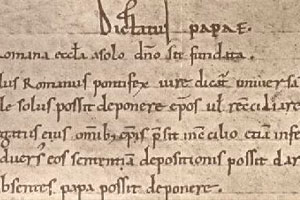 Dictatus papae.
omana eccla a solo dño sit fundata.
lus Romanus pontifex iure dicat universa
le solus possit deponere epos ul reconciliare
gatus eius omib; epis presit in concilio etiam infe
duers eos sententiam depositionis possit dar
bsentes papa possit deponere.